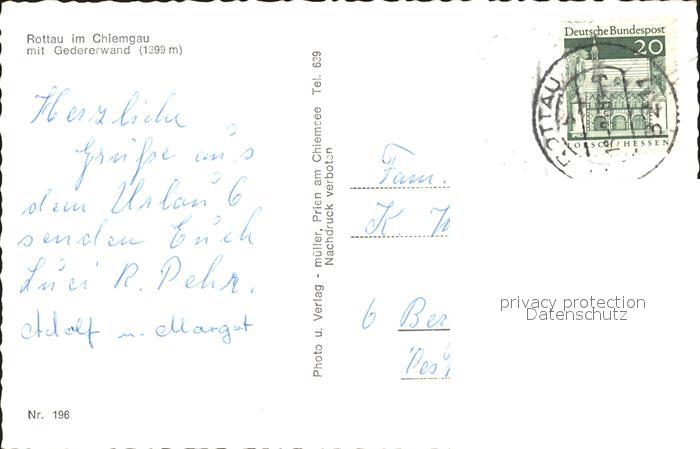 Rottau im Chiemgau
mit Gedererwand (1399 m)
Herzliche
Grüße aus
dem Urlaub
senden Euch
Luci R. Pehr.
Adolf u. Margot
Nr. 196
Photo u. Verlag - müller, Prien am Chiemsee Tel. 639
Nachdruck verboten
Deutsche Bundespost
20
LORSCH/HESSEN
ROTTAU
Fam.
K. W
6 Ber
privacy protection
Datenschutz